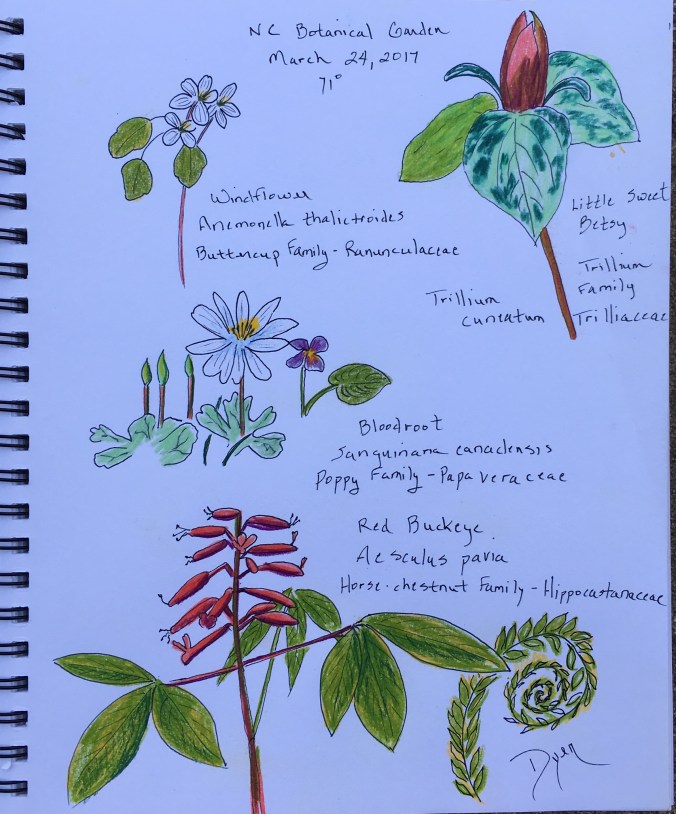 NC Botanical Garden
March 24, 2017
71°
Windflower
Anemonella thalictroides
Buttercup Family - Ranunculaceae
Little Sweet
Betsy
Trillium
Family
Trilliaceae
Trillium
cuneatum
Bloodroot
Sanguinaria canadensis
Poppy Family - Papaveraceae
Red Buckeye
Aesculus pavia
Horse-chestnut Family - Hippocastanaceae
Dyer